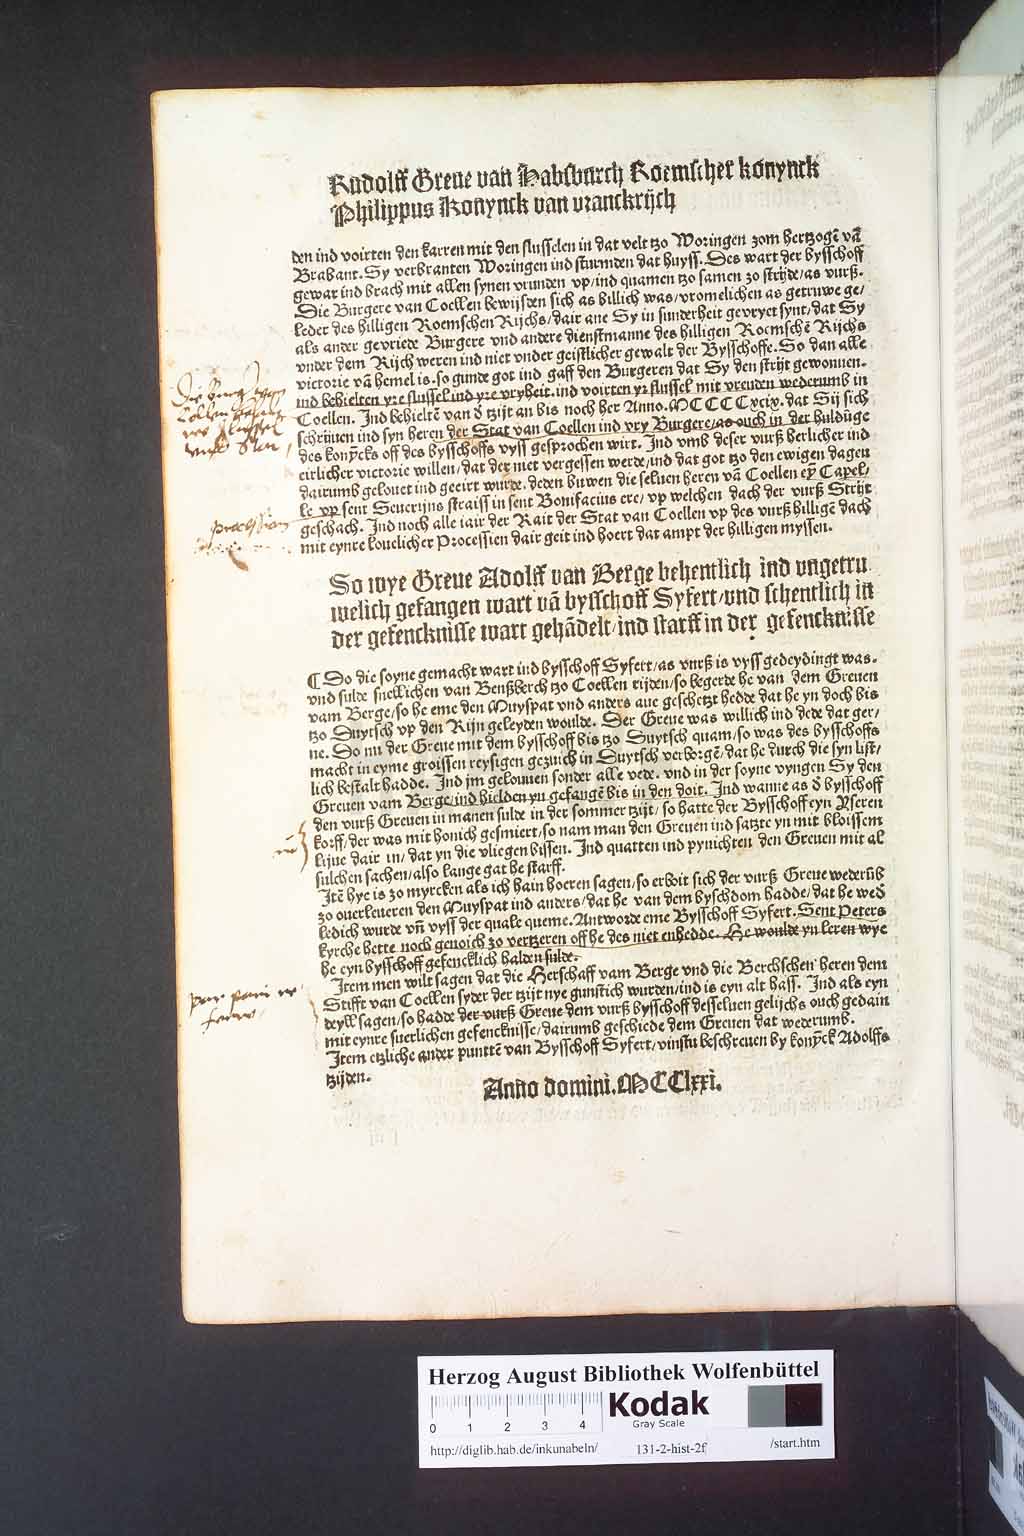 Rudolff Greue van Habsburch Roemscher konynck
Philippus Konynck van vranckrijch
den ind voirten den karren mit den slusselen in dat velt tzo Woringen zom hertzogē vā
Brabant. Sy verbranten Woringen ind sturmden dat huyss. Des wart der bysschoff
gewar ind brach mit allen synen vrunden vp/ind quamen tzo samen zo strijde/as vurß.
Die Burgere van Coellen bewijsden sich as billich was/vromelichen as getruwe ge/
leder des hilligen Roemschen Rijchs/dair ane Sy in sunderheit gevryet synt/dat Sy
als ander gevriede Burgere vnd andere dienstmanne des hilligen Roemschē Rijchs
vnder dem Rijch weren ind niet vnder geistlicher gewalt der Bysschoffe. So dan alle
victorie vā hemel is. so gunde got ind gaff den Burgeren dat Sy den strijt gewonnen.
ind behielten yre slussel ind yre vryheit. ind voirten yr slussel mit vreuden wederumb in
Coellen. Ind behieltē van d̄ tzijt an bis noch her Anno. MCCCCxcix. dat Sij sich
schrijuen ind syn heren der Stat van Coellen ind vry Burgere/as ouch in der huldūge
des konyncks off des bysschoffs vyss gesprochen wirt. Ind vmb deser vurß herlicher ind
eirlicher victorie willen/dat der niet vergessen werde/ind dat got tzo den ewigen dagen
dairumb gelouet ind geeirt wurde. deden buwen die seluen heren vā Coellen ey Capel/
le vp sent Seuerijns straiss in sent Bonifacius ere/vp welchen dach der vurß Strijt
geschach. Ind noch alle iair der Rait der Stat van Coellen vp des vurß hilligē dach
mit eynre louelicher Processien dair geit ind hoert dat ampt der hilligen myssen.
So wye Greue Adolff van Berge behentlich ind vngetru
welich gefangen wart vā bysschoff Syfert/vnd schentlich in
der gefencknisse wart gehādelt/ind starff in der gefencknisse
¶ Do die soyne gemacht wart ind bysschoff Syfert/as vurß is vyss gedeydingt was.
vnd sulde snellichen van Benßberch tzo Coellen rijden/so begerde he van dem Greuen
vam Berge/so he eme den Muyspat vnd anders aue geschetzt hedde dat he yn doch bis
tzo Duytsch vp den Rijn geleyden woulde. Der Greue was willich ind dede dat ger/
ne. Do nu der Greue mit dem bysschoff bis tzo Duytsch quam/so was des bysschoffs
macht in eyme groissen reysigen gezuich in Duytsch verborgē/dat he durch die syn list/
lich bestalt hadde. Ind jm gelouuen sonder alle vede. vnd in der soyne vyngen Sy den
Greuen vam Berge/ind hielden yn gefangē bis in den doit. Ind wanne as d̄ bysschoff
den vurß Greuen in manen sulde in der sommer tzijt/so hatte der Bysschoff eyn Yseren
korff/der was mit honich gesmiert/so nam man den Greuen ind satzte yn mit bloissem
lijue dair in/dat yn die vliegen bissen. Ind quatten ind pynichten den Greuen mit al
sulchen sachen/also lange gat he starff.
Itē hye is zo myrcken als ich hain hoeren sagen/so erboit sich der vurß Greue wederūb
zo ouerleueren den Muyspat ind anders/dat he van dem byschdom hadde/dat he wed̄
ledich wurde vn̄ vyss der quale queme. Antworde eme Bysschoff Syfert. Sent Peters
kyrche hette noch genoich zo vertzeren off he des niet enhedde. He woulde yn leren wye
he eyn bysschoff gefencklich halden sulde.
Item men wilt sagen dat die Herschaff vam Berge vnd die Berchschen heren dem
Stifft van Coellen syder der tzijt nye gunstich wurden/ind is eyn alt hass. Ind als eyn
deyll sagen/so hadde der vurß Greue dem vurß bysschoff desseluen gelijchs ouch gedain
mit eynre suerlichen gefencknisse/dairumb geschiede dem Greuen dat wederumb.
Item etzliche ander punttē van Bysschoff Syfert/vinstu beschreuen by konyck Adolffs
tzijden.
Anno domini. MCClxxi.
Herzog August Bibliothek Wolfenbüttel
Kodak
Gray Scale
0 1 2 3 4
http://diglib.hab.de/inkunabeln/ 131-2-hist-2f /start.htm